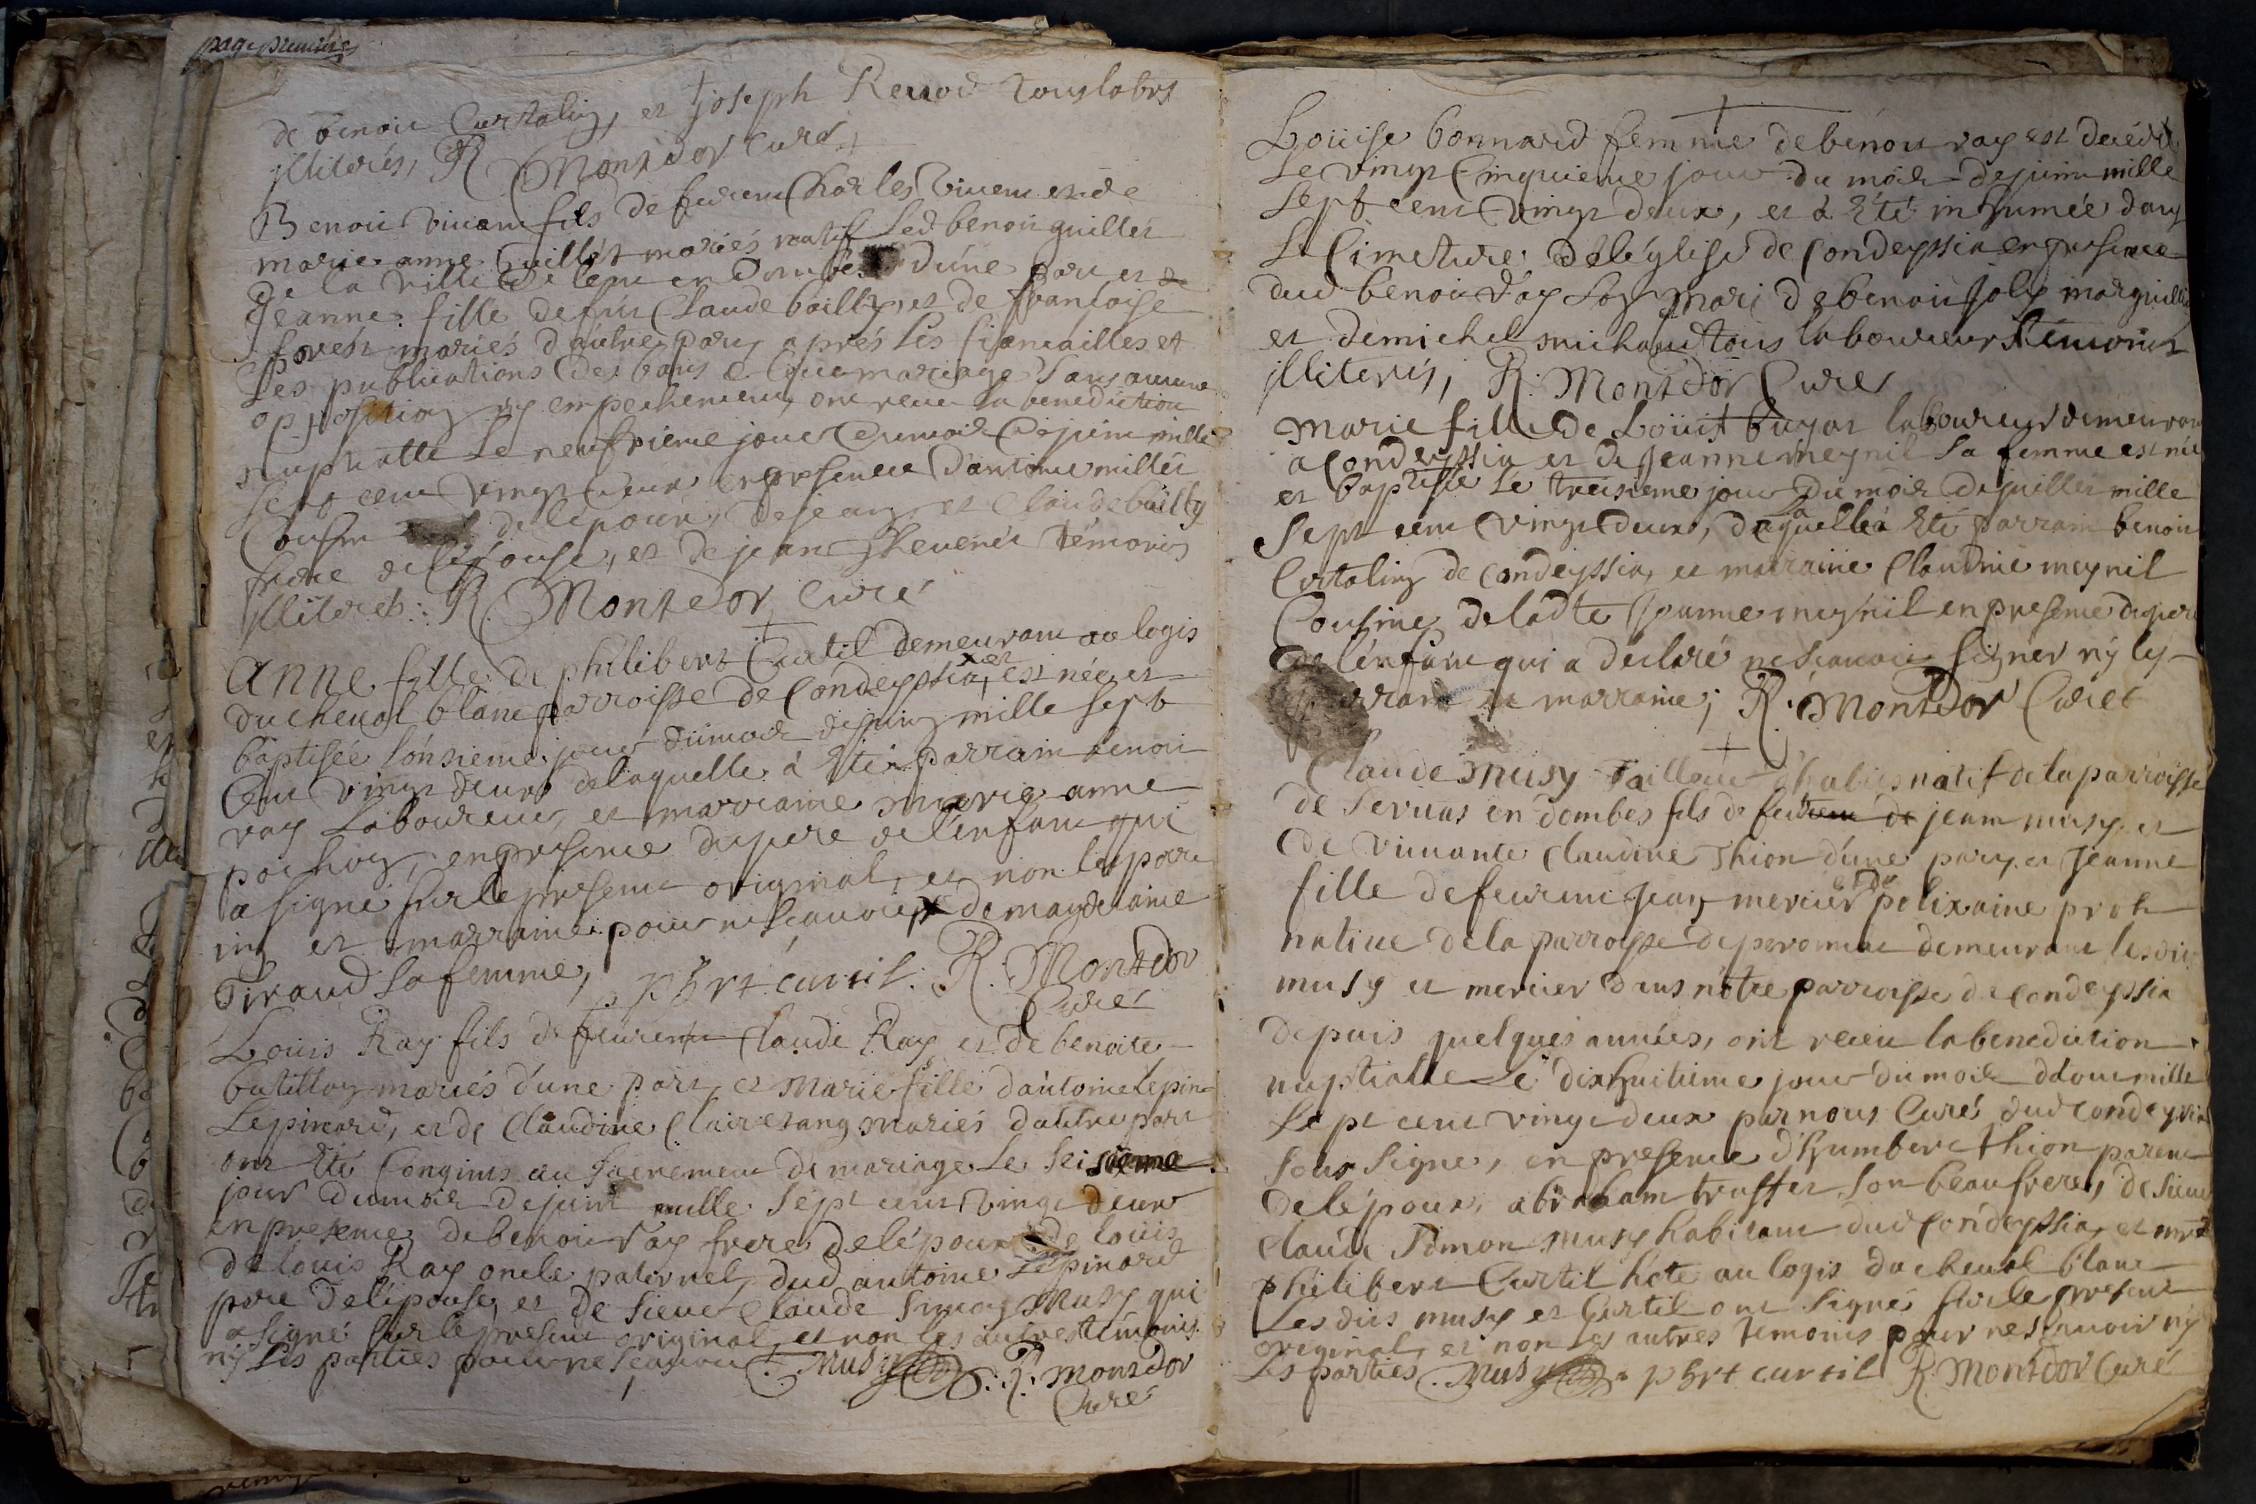 page premiere
de benoit Curtalin, et Joseph Renod tous labrs
illiterés, R. Montdor Curé
Benoit Vivem fils de feu Charles Vivem et de
marie anne Guillet mariés natif led benoit guillet
de la ville de lent en Dombes d'une part et
Jeanne fille de feu Claude bailly, et de francoise
forest mariés d'autre part, aprés les fiancailles et
les publications des bans de mariage sans aucune
opposition ny empechement, ont receu la benediction
nuptialle le jour du mois de juin mille
sept cent vingt deux en presence d'antoine millet
Cousin de l'époux, de jean et Claude bailly
frere de l'épouse, et de jean Thevenet témoins
illiterés. R. Montdor, Curé
Anne fille de philibert Curtil demeurant au logis
du cheval blanc parroisse de Condeyssia, est née et
baptisée l'onsieme jour du mois de juin mille sept
cent vingt deux de laquelle à été parrain benoit
ray Laboureur, et marraine marie anne
pochon, en presence du pere de l'enfant qui
a signé sur le present original, et non les parr
in, et marraine pour ne scavoir de magdelaine
Tiraud sa femme, phrt. curtil. R. Montdor
Curé
Louis Ray fils de feu Claude Ray, et de benoite
batillon mariés d'une part, et Marie fille d'antoine lepin
Lepinard, et de Claudine Clairetang mariés d'autre part
ont été Conjints au sacrement de mariage le seisieme
jour du mois de juin mille sept cent vingt deux
en presence de benoit ray frere de l'époux de louis
de louis Ray oncle paternel, dud antoine Lepinard
pere de l'épouse, et de sieur Claude simon Musy qui
a signé sur le present original, et non les autres témoins
ny les parties pour ne scavoir. Musy. R. montdor
Curé
Loüise bonnard femme de benoit ray est decédée
Le vingt Cinquieme jour du mois de juin mille
Sept cent vingt deux, et à été inhumée dans
Le Cimetiere de l'église de Condeyssia en presence
dud benoit ray son mari de benoit Joly marguillier
et de michel michaud tous laboureurs témoins
illiterés, R. Montdor Curé
Marie fille de Loüis buyat laboureur demeurant
a Condeyssia et de Jeanne meynil sa femme est née
et baptisée le treisieme jour du mois de juillet mille
Sept cent vingt deux, de laquelle à été parrain benoit
Curtalin de condeyssia, et marraine Claudine meynil
Cousine de ladte Jeanne meynil en presence du pere
de l'enfant qui a declaré ne scavoir signer ny les
parrain et marraine; R. Montdor Curé
Claude Musy Tailleur d'habits natif de la parroisse
de Servas en dombes fils de feu jean musy et
de vivante Claudine Thion d'une part, et Jeanne
fille de feu Jean mercier et de polixaine proh
native de la parroisse de peronnas demeurant lesdits
musy et mercier dans nôtre parroisse de Condeyssia
depuis quelques années, ont receu la benediction
nuptialle le dixhuitieme jour du mois d'aout mille
sept cent vingt deux par nous Curé dud condeyssia
sous signé, en presence d'humbert thion parent
de l'époux, abraham truffet son beaufrere, de sieur
Claude Simon musy habitant dud Condeyssia, et
philibert Curtil hôte au logis du cheval blanc
Lesdits musy et Curtil ont signé sur le present
original, et non les autres temoins pour ne scavoir ny
les parties. Musy phrt curtil R. Montdor Curé